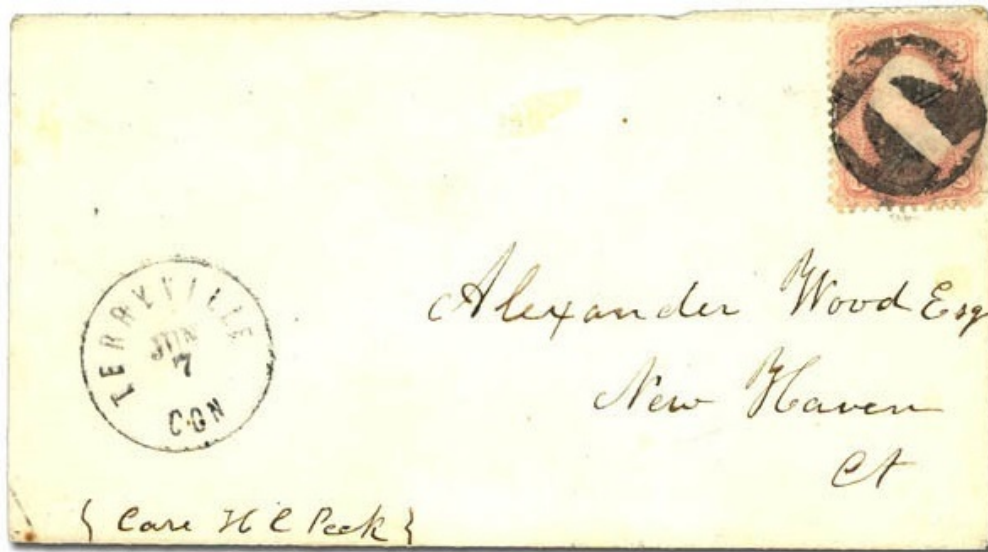 TERRYVILLE
JUN
7
CON
Alexander Wood Esq
New Haven
Ct
{ Care H C Peck }